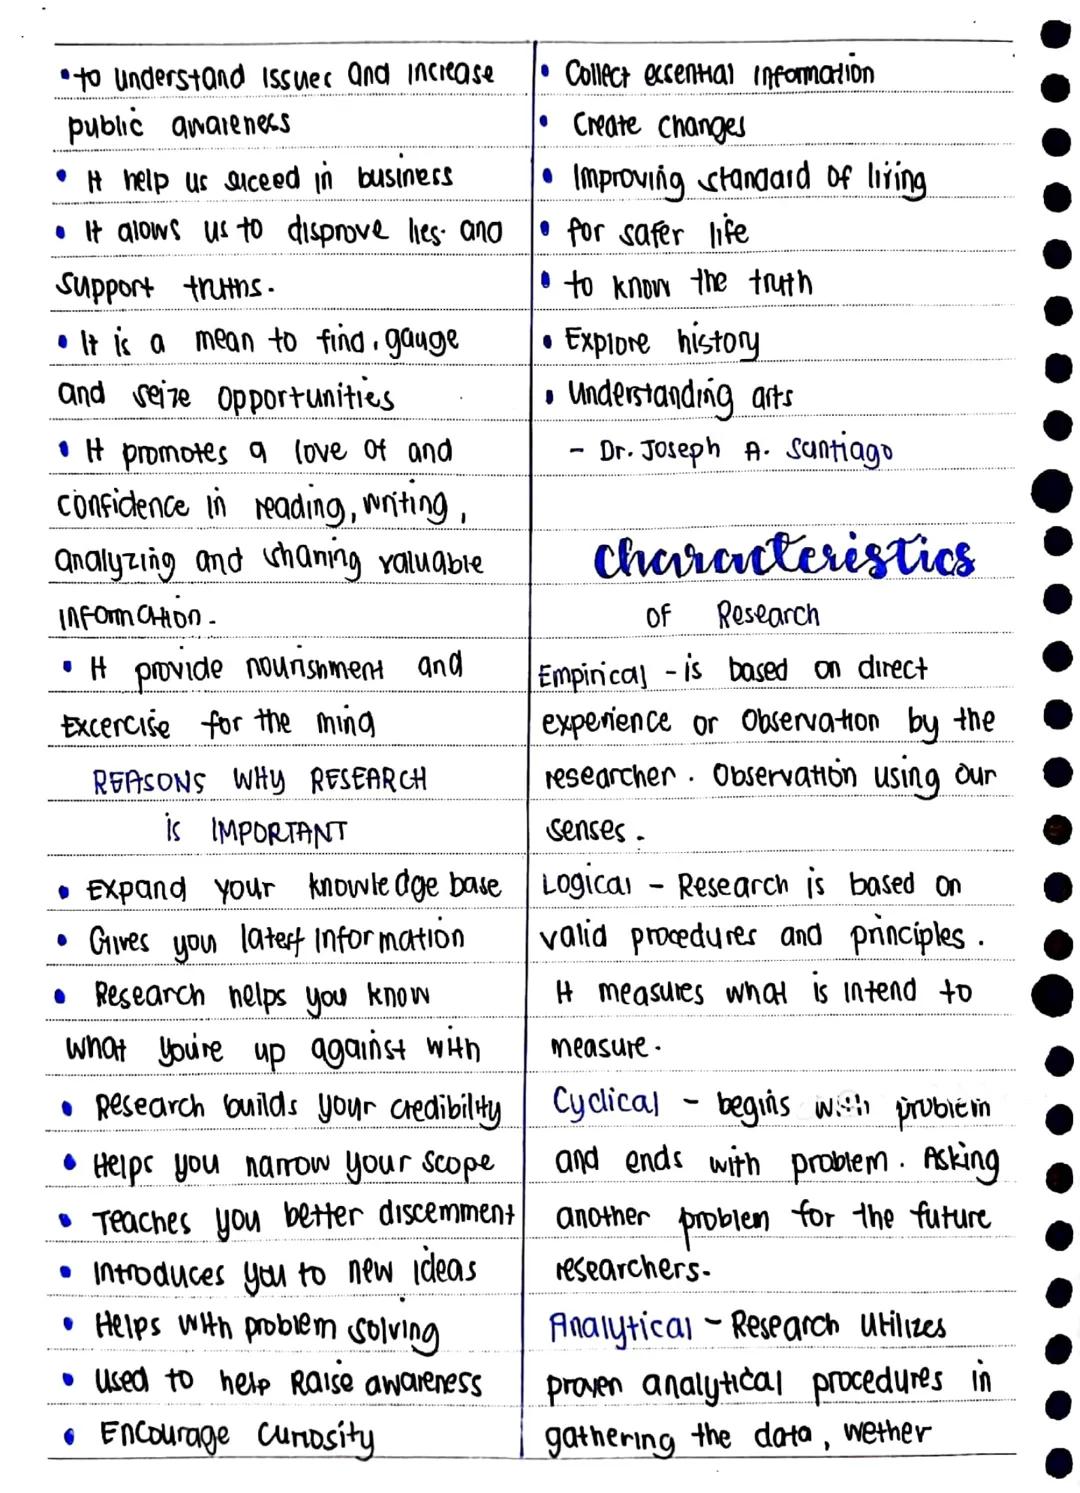 • to understand issues and increase
public awareness
• It help us suceed in business
• It alows us to disprove lies. and
support truths.
• It is a mean to find, gauge
and seize opportunities
• It promotes a love of and
confidence in reading, writing,
analyzing and sharing valuable
information.
• It provide nourishment and
Excercise for the mind
REASONS WHY RESEARCH
is IMPORTANT
• Expand your knowledge base
• Gives you latest information
• Research helps you know
what you're up against with
• Research builds your credibility
• Helps you narrow your scope
• Teaches you better discernment
• Introduces you to new ideas
• Helps with problem solving
• Used to help Raise awareness
• Encourage curiosity
• Collect essential information
• Create changes
• Improving standard of living
• for safer life
• to know the truth
• Explore history
• Understanding arts
- Dr. Joseph A. Santiago
characteristics
of Research
Empirical - is based on direct
experience or observation by the
researcher. Observation using our
senses.
Logical - Research is based on
valid procedures and principles.
It measures what is intend to
measure.
Cyclical - begins with problem
and ends with problem. Asking
another problem for the future
researchers.
Analytical - Research utilizes
proven analytical procedures in
gathering the data, wether